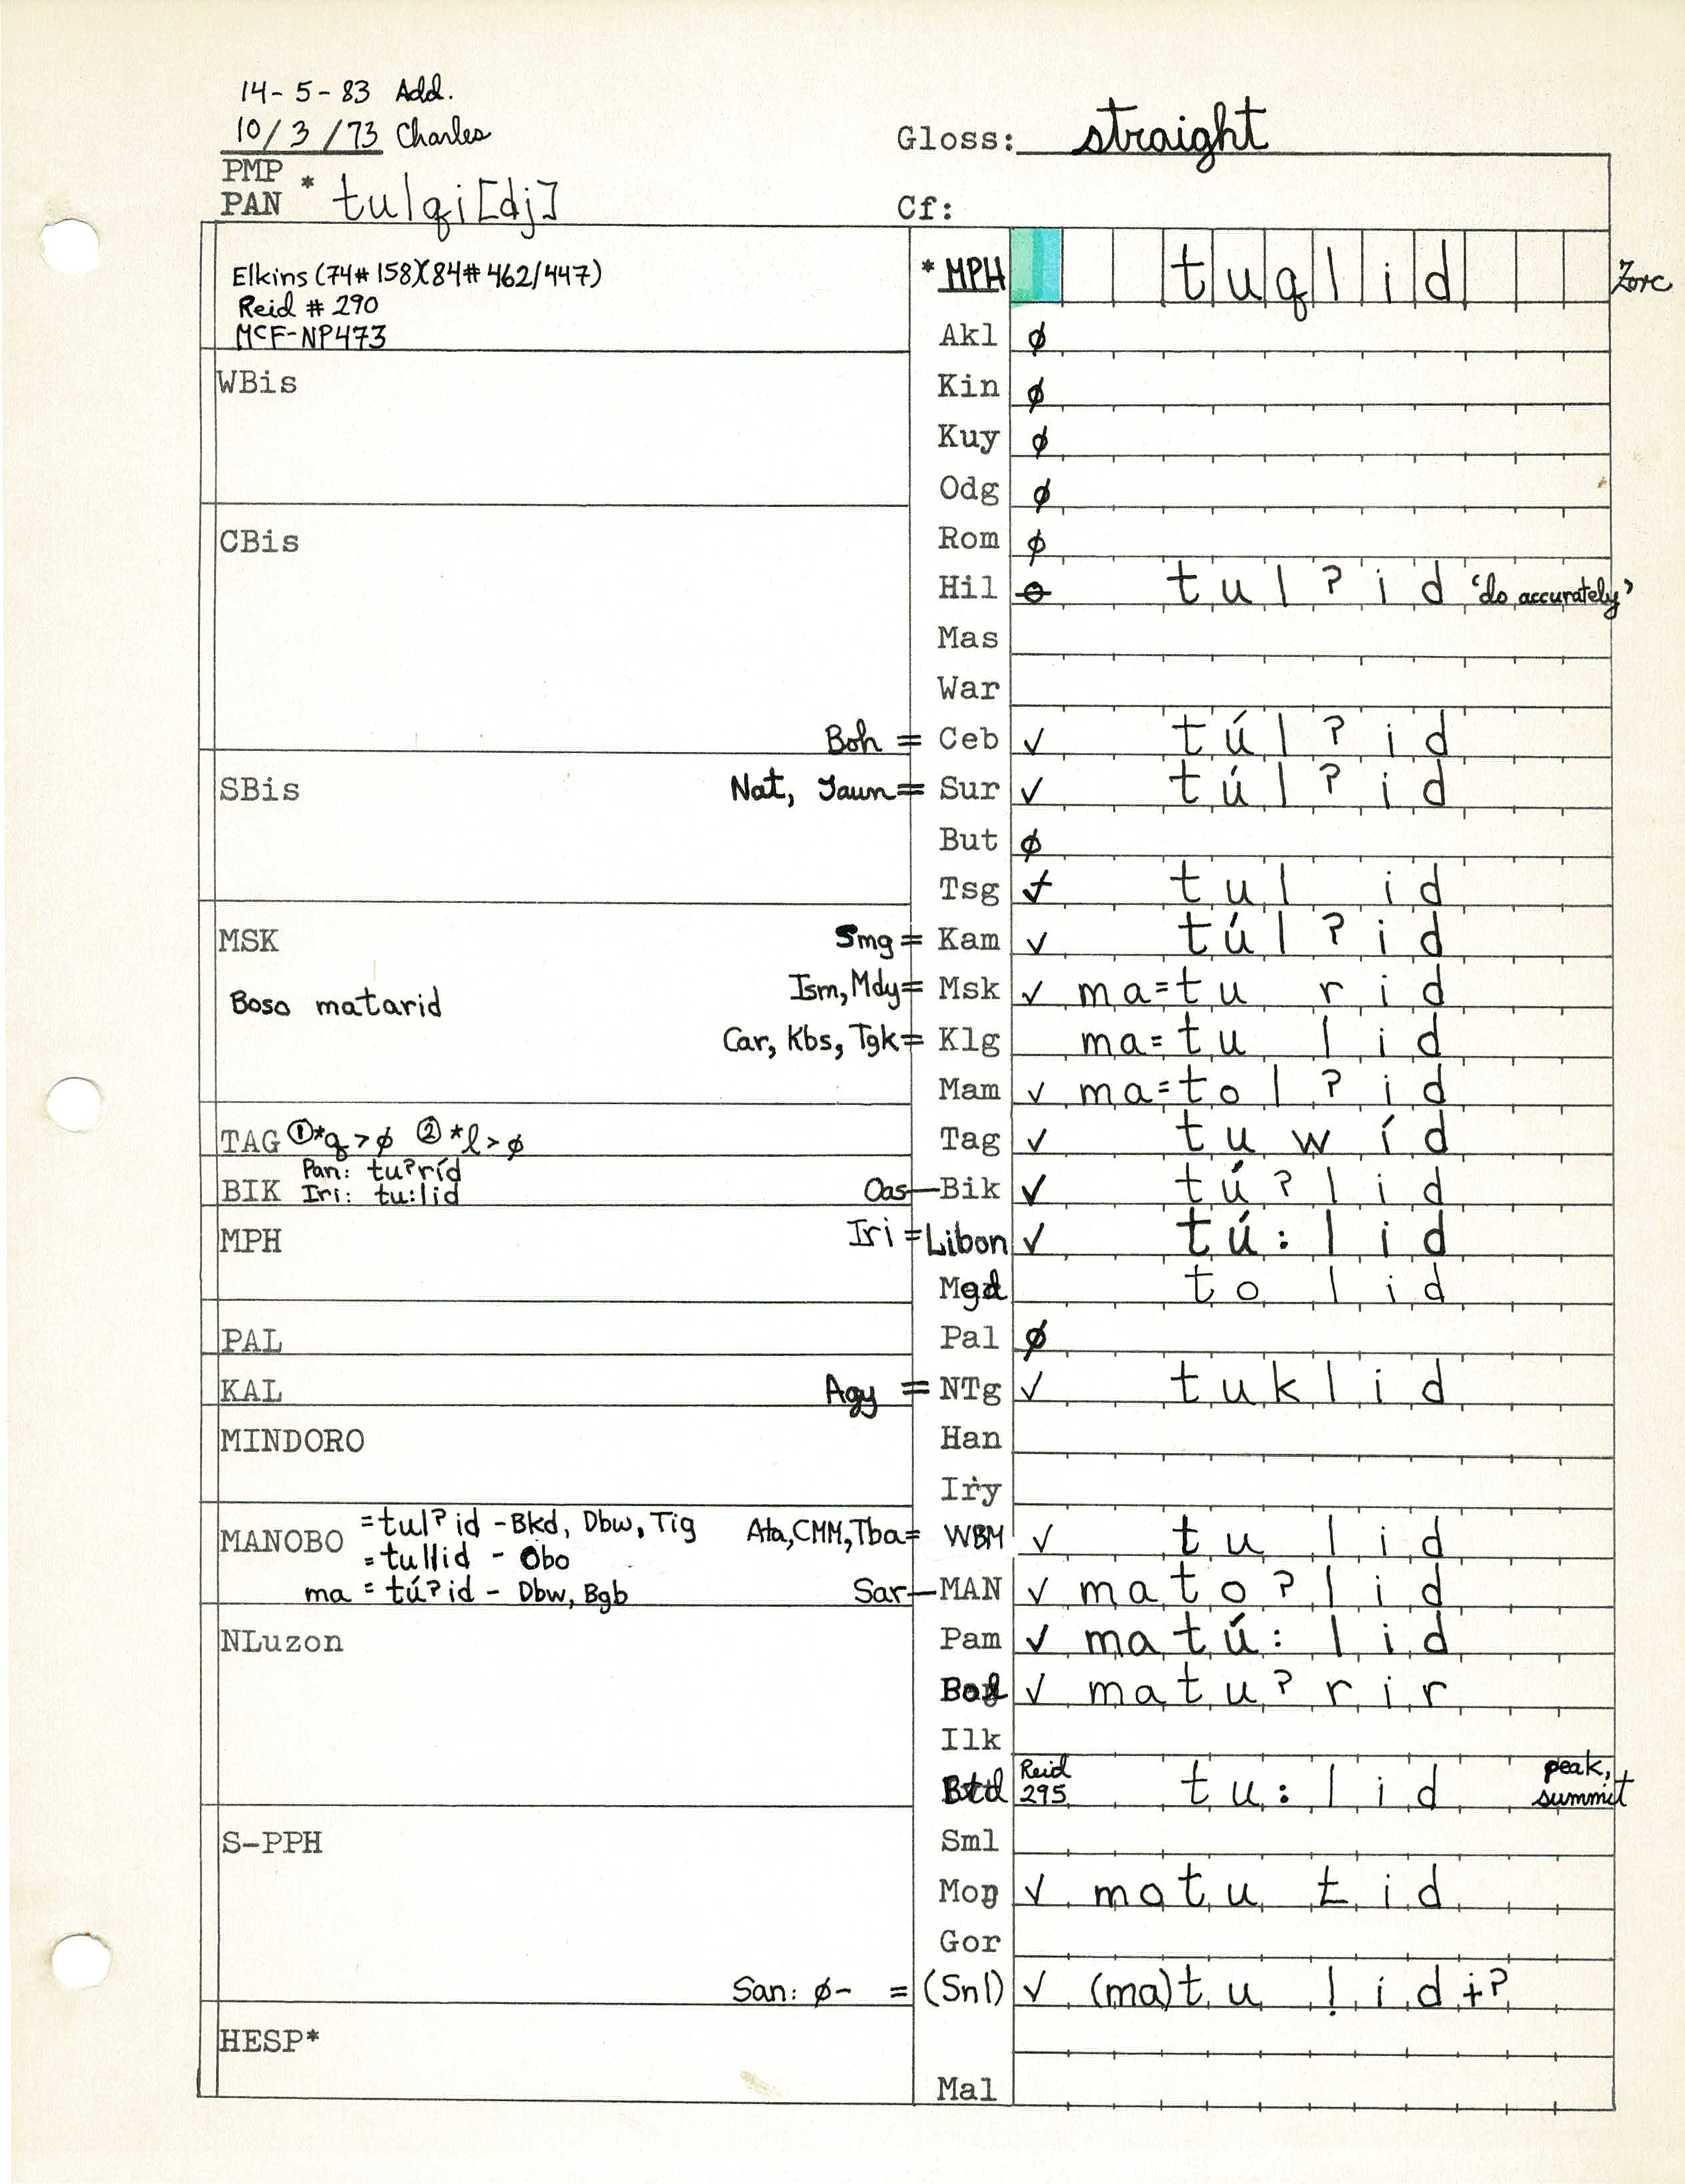 14-5-83 Add.
10/3/73 Charles
Gloss: straight
PMP
PAN * tulqi[dj]
Cf:
Elkins (74#158)(84#462/447)
Reid #290
MCF-NP473
*MPH tuqlid Zorc
Akl ø
WBis
Kin ø
Kuy ø
Odg ø
CBis
Rom ø
Hil ɵ tul?id 'do accurately'
Mas
War
Boh = Ceb ✓ túl?id
SBis Nat, Jaun= Sur ✓ túl?id
But ø
Tsg ✓ tul id
MSK Smg = Kam ✓ túl?id
Boso matarid Ism, Mdy= Msk ✓ ma=tu rid
Car, Kbs, Tgk= Klg ma=tu lid
Mam ✓ ma=tol?id
TAG ①*q > ø ②*l > ø Tag ✓ tuwíd
Pan: tu?ríd
BIK Iri: tu:lid Oas—Bik ✓ tú?lid
MPH Iri = Libon ✓ tú:lid
Mgd to lid
PAL Pal ø
KAL Agy = NTg ✓ tuklid
MINDORO Han
Iry
MANOBO =tul?id - Bkd, Dbw, Tig Ata, CMM, Tba= WBM ✓ tu lid
=tullid - Obo
ma = tú?id - Dbw, Bgb Sar—MAN ✓ mato?lid
NLuzon Pam ✓ matú:lid
✓ matu?rir
Ilk
Btd Reid 295 tu:lid peak, summit
S-PPH Sml
Moŋ ✓ motu łid
Gor
San: ø- = (Snl) ✓ (ma)tu lid+?
HESP*
Mal